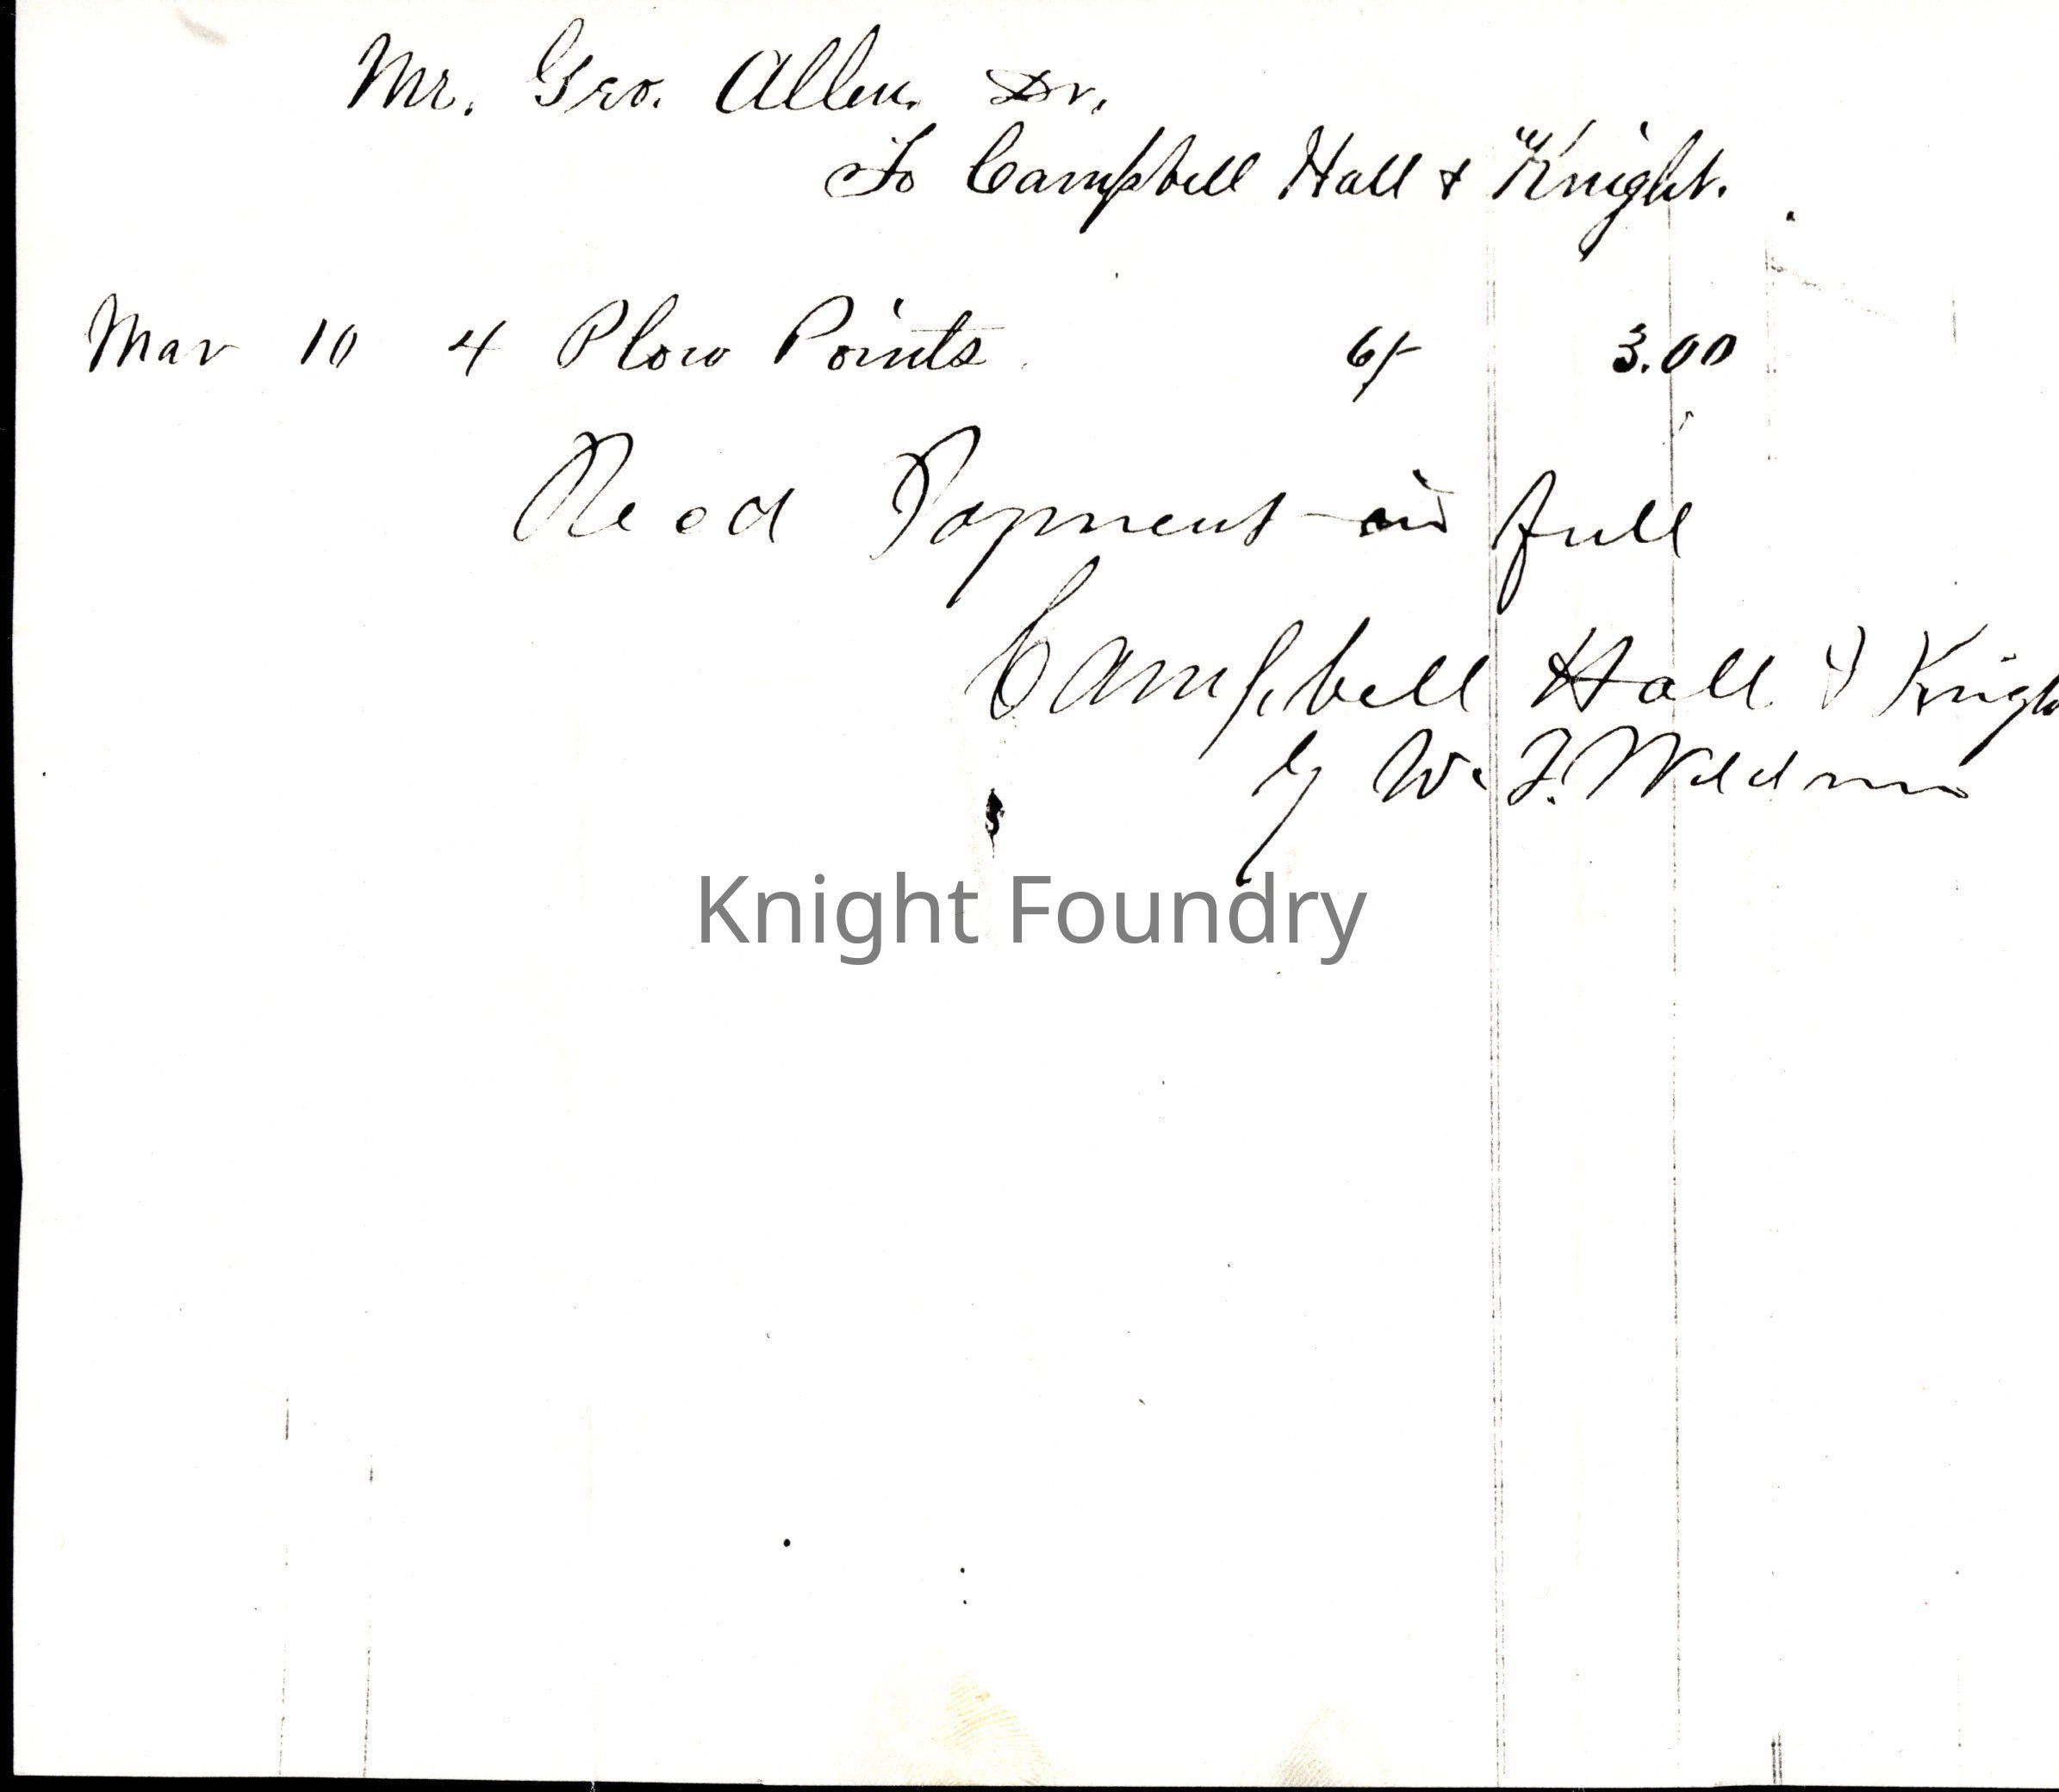 Mr. Geo. Allen, Dr.
To Campbell Hall & Knight.
Mar 10 4 Plow Points 6/- 3.00
Recd Payment in full
Campbell Hall & Knigh
by W. F.
Knight Foundry